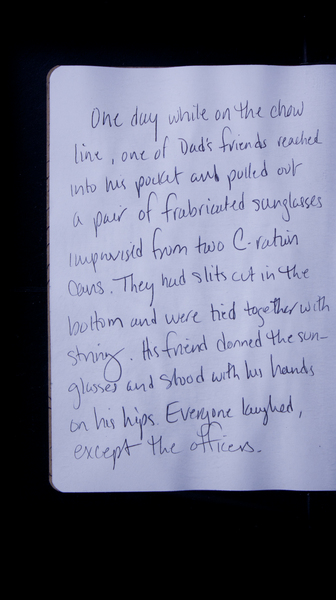 One day while on the chow
line, one of Dad's friends reached
into his pocket and pulled out
a pair of frabricated sunglasses
improvised from two C-ration
cans. They had slits cut in the
bottom and were tied together with
string. His friend donned the sun-
glasses and stood with his hands
on his hips. Everyone laughed,
except the officers.